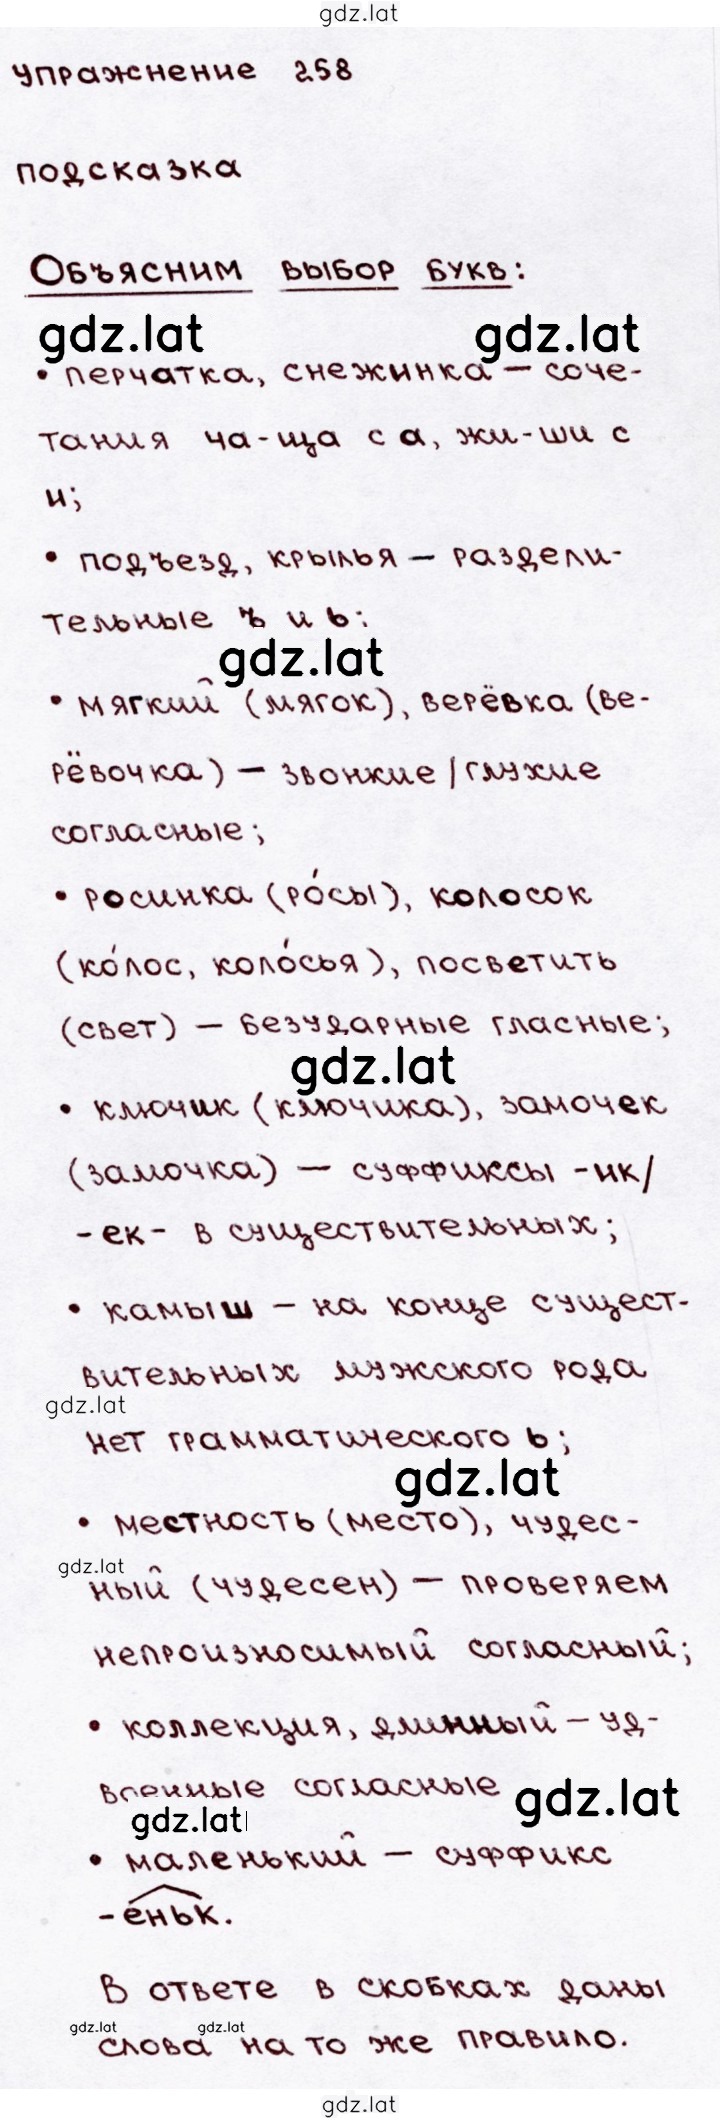 gdz.lat
упражнение 258
подсказка
Объясним выбор букв:
gdz.lat gdz.lat
• перчатка, снежинка – соче-
тания ча-ща с а, жи-ши с
и;
• подъезд, крылья – раздели-
тельные ъ и ь:
gdz.lat
• мягкий (мягок), верёвка (ве-
рёвочка) – звонкие/глухие
согласные;
• росинка (ро́сы), колосок
(ко́лос, коло́сья), посветить
(свет) – безударные гласные;
gdz.lat
• ключик (ключика), замочек
(замочка) – суффиксы -ик/
-ек- в существительных;
• камыш – на конце сущест-
вительных мужского рода
gdz.lat
нет грамматического ь;
gdz.lat
• местность (место), чудес-
gdz.lat
ный (чудесен) – проверяем
непроизносимый согласный;
• коллекция, длинный – уд-
военные согласные
gdz.lat
gdz.lat
• маленький – суффикс
-еньк.
В ответе в скобках даны
gdz.lat gdz.lat
слова на то же правило.
gdz.lat